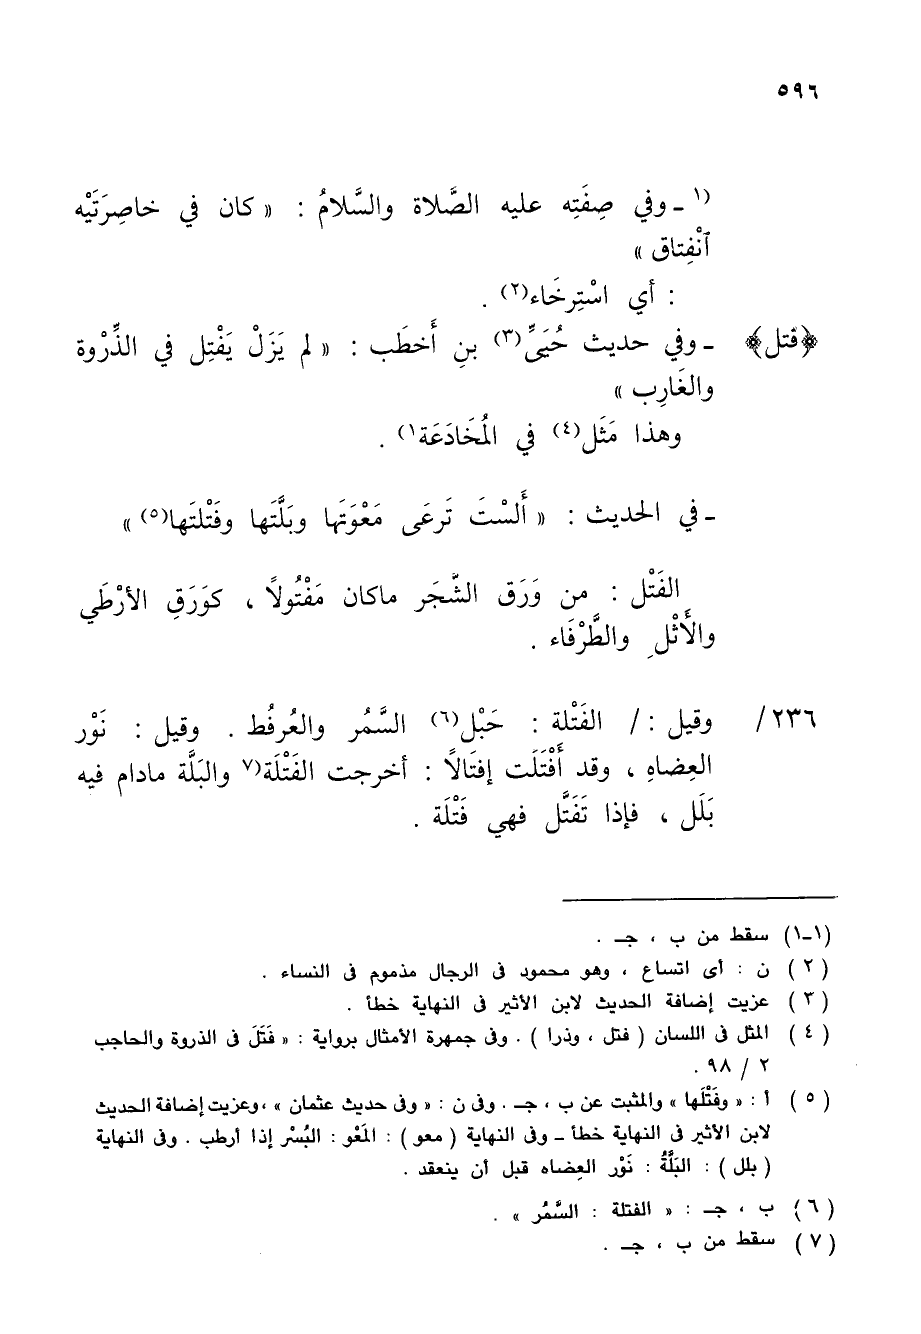 ٥٩٦
(١ ـ وفي صِفَتِه عليه الصَّلاة والسَّلامُ : « كان في خاصِرَتَيْه
ٱنْفِتاق »
: أي اسْتِرخَاء(٢) .
﴿فتل﴾ ـ وفي حديث حُيَىِّ(٣) بنِ أَخطَب : « لم يَزَلْ يَفْتِل في الذِّرْوة
والغَارِب »
وهذا مَثَل(٤) في المُخَادَعَة١) .
ـ في الحديث : « أَلسْتَ تَرعَى مَعْوَتَها وبَلَّتَها وفَتْلتَها(٥) »
الفَتْل : من وَرَق الشَّجَر ماكان مَفْتُولاً ، كوَرَقِ الأرْطَي
والأَثْلِ والطَّرْفَاء .
٢٣٦/ وقيل : / الفَتْلة : حَبْل(٦) السَّمُر والعُرفُط . وقيل : نَوْر
العِضاهِ ، وقد أَفْتَلَت إفتَالاً : أخرجت الفَتْلَة(٧ والبَلَّة مادام فيه
بَلَل ، فإذا تَفَتَّل فهي فَتْلَة .
(١ـ١) سقط من ب ، جـ .
(٢) ن : أى اتساع ، وهو محمود فى الرجال مذموم فى النساء .
(٣) عزيت إضافة الحديث لابن الأثير فى النهاية خطأ .
(٤) المثل فى اللسان ( فتل ، وذرا ) . وفى جمهرة الأمثال برواية : « فَتَلَ فى الذروة والحاجب
٢ / ٩٨ .
(٥) أ : « وفَتْلَها » والمثبت عن ب ، جـ . وفى ن : « وفى حديث عثمان » ،وعزيت إضافة الحديث
لابن الأثير فى النهاية خطأ ـ وفى النهاية ( معو ) : المَعْو : البُسْر إذا أرطب . وفى النهاية
( بلل ) : البَلَّةُ : نَوْر العِضاه قبل أن ينعقد .
(٦) ب ، جـ : « الفتلة : السَّمُر » .
(٧) سقط من ب ، جـ .